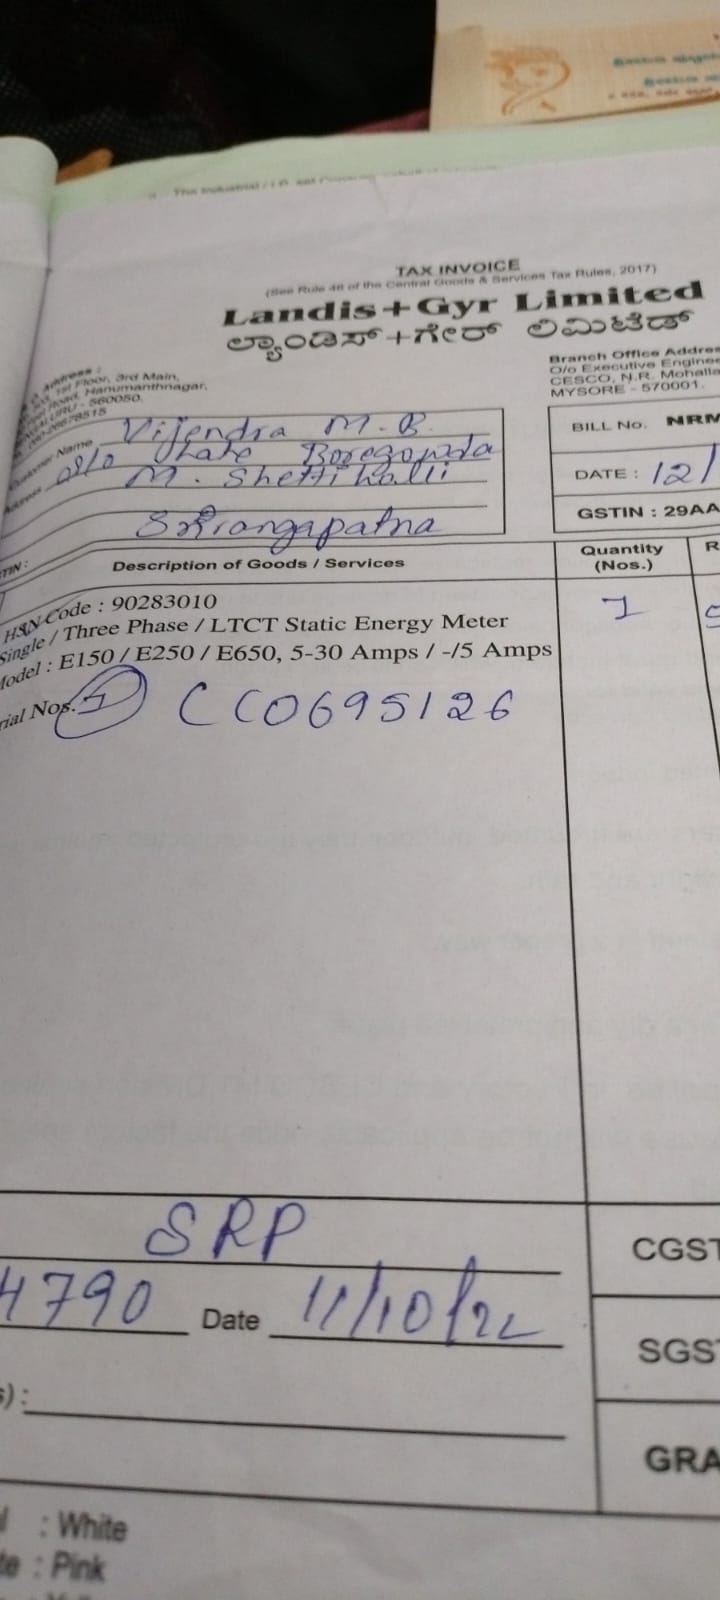 TAX INVOICE
(See Rule 46 of the Central Goods & Services Tax Rules, 2017)
Landis+Gyr Limited
ಲ್ಯಾಂಡಿಸ್+ಗೇರ್ ಲಿಮಿಟೆಡ್
Address :
1st Floor, 3rd Main,
Road, Hanumanthnagar,
URU - 560050.
Branch Office Addres
O/o Executive Enginee
CESCO, N.R. Mohalla
MYSORE - 570001.
Customer Name Vijendra M.B.
Address S/o Late Boregowda
M. Shettihalli
Srirangapatna
BILL No. NRM
DATE : 12/
GSTIN : 29AA
TIN :
Description of Goods / Services
Quantity
(Nos.)
R
HSN Code : 90283010
Single / Three Phase / LTCT Static Energy Meter
Model : E150 / E250 / E650, 5-30 Amps / -/5 Amps
1
rial Nos. 1 CC0695126
SRP
4790 Date 11/10/22
s) :
CGST
SGST
GRA
l : White
te : Pink